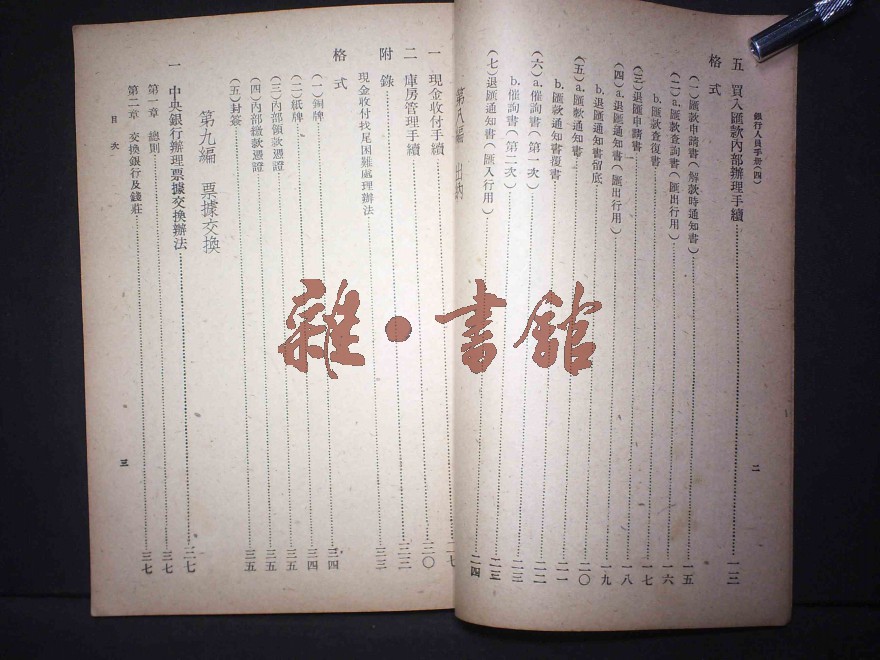 銀行人員手册(四)
五 買入匯款內部辦理手續 一三
格式
(一)匯款申請書(解款時通知書) 一五
(二)a.匯款查詢書(匯出行用) 一六
b.匯款查復書 一七
(三)退匯申請書 一八
(四)a.退匯通知書(匯出行用) 一九
b.退匯通知書留底 二〇
(五)a.匯款通知書 二一
b.匯款通知書覆書 二二
(六)a.催詢書(第一次) 二三
b.催詢書(第二次) 二三
(七)退匯通知書(匯入行用) 二四
二
第八編 出納
一 現金收付手續 二七
二 庫房管理手續 三〇
附錄 三二
現金收付找尾困難處理辦法 三三
格式 三四
(一)銅牌 三四
(二)紙牌 三五
(三)內部領款憑證 三五
(四)內部繳款憑證 三五
(五)封簽
第九編 票據交換
一 中央銀行辦理票據交換辦法 三七
第一章 總則 三七
第二章 交換銀行及錢莊 三七
目次
三
雜·書館